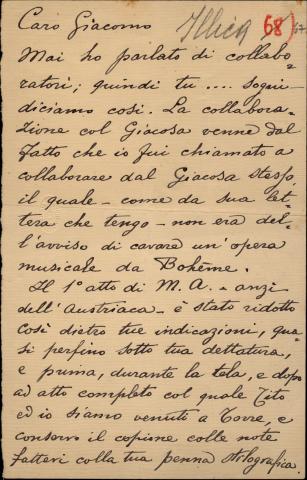 Caro Giacomo Illica 68 67
Mai ho parlato di collabo-
ratori; quindi tu .... sogni
diciamo così. La collabora-
zione col Giacosa venne dal
fatto che io fui chiamato a
collaborare dal Giacosa stesso
il quale - come da sua let-
tera che tengo - non era del-
l'avviso di cavare un'opera
musicale da Bohême.
Il 1° atto di M. A. - anzi
dell'Austriaca - è stato ridotto
così dietro tue indicazioni, qua-
si perfino sotto tua dettatura,
e prima, durante la tela, e dopo
ad atto completo col quale Tito
ed io siamo venuti a Torre, e
conservo il copione colle note
fattevi colla tua penna stilografica.